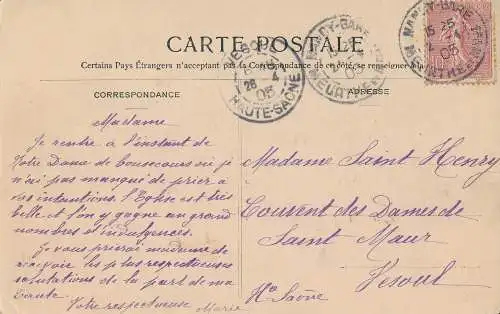 CARTE POSTALE
Certains Pays Étrangers n'acceptant pas la Correspondance de ce côté, se renseigner à la
CORRESPONDANCE
ADRESSE
NANCY-GARE
15 25
05
MEURTHE
NANCY-GARE
05
MEURTHE
VESOUL
28 4
05
HAUTE-SAÔNE
Madame
Je rentre à l'instant de
Notre Dame de bonsecours où je
n'ai pas manqué de prier à
vos intentions, l'Eglise est très
belle et l'on y gagne un grand
nombres d'indulgences.
Je vous prierai madame de
recevoir les plus respectueuses
salutations de la part de ma
tante
Votre respectueuse
Marie
Madame Saint Henry
Couvent des Dames de
Saint Maur
Vesoul
Hte Saône